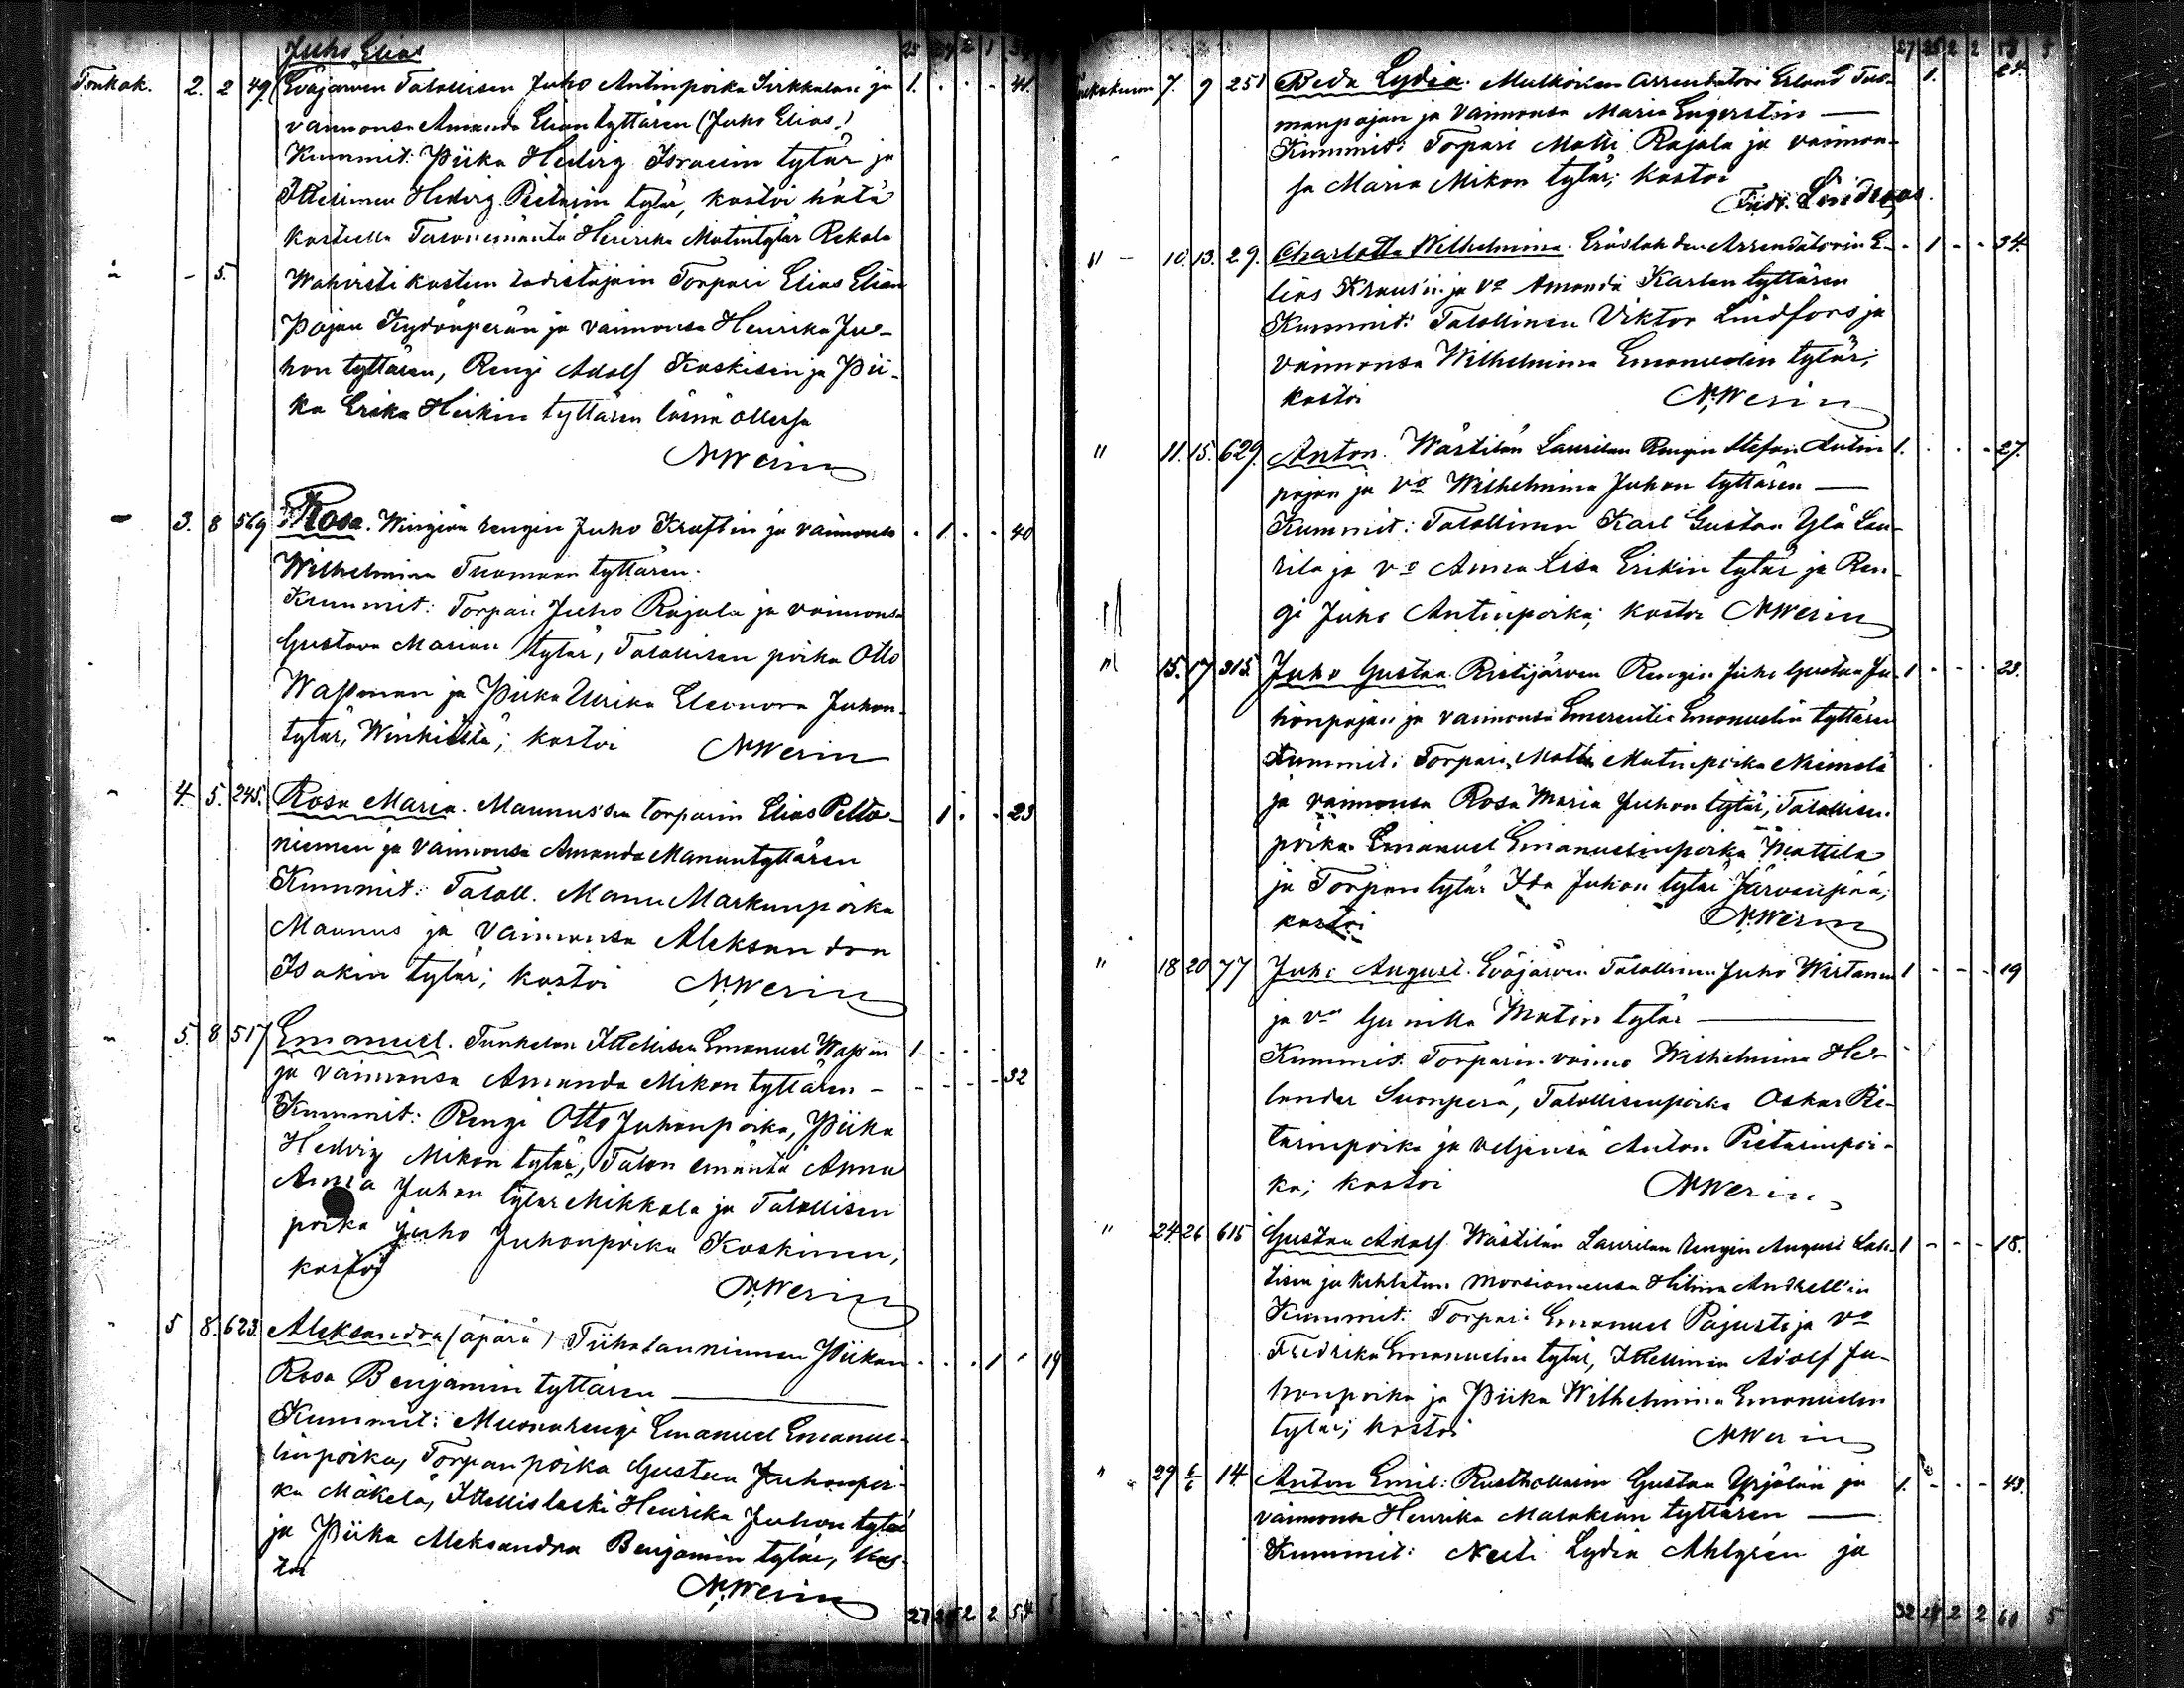 Juho Elias 25 2 1
Toukok. 2. 2 49. Eväjärven Talollisen Juho Antinpoika Sirkkalan ja 1. . . - 41.
vaimonsa Amanda Elian tyttären (Juho Elias.)
Kummit: Piika Hedvig Israelin tytär ja
Itellinen Hedvig Pietarin tytär, kastoi hätä
kasteella Talonemäntä Henrika Matintytär Rekola
" - 5. Wahvisti kasteen todistajain Torpari Elias Elian
Pojan Kydönperän ja vaimonsa Henrika Ju-
hon tyttären, Rengi Adolf Koskisen ja Pii-
ka Erika Heikin tyttären läsnä ollessa
N.Werin
" 3. 8 569 Rosa. Wingiän rengin Juho Kraftin ja vaimonsa . 1 . . 40
Wilhelmina Tuomaan tyttären.
Kummit: Torpari Juho Rajala ja vaimonsa
Gustava Marian tytär, Talollisen poika Otto
Wassman ja Piika Ulrika Eleonora Juhon-
tytär, Winkistä; kastoi N.Werin
" 4. 5. 245. Rosa Maria. Maunus'en torparin Elias Pelto- 1 . . 23
niemen ja vaimonsa Amanda Manuntyttären
Kummit: Taloll. Manu Markunpoika
Maunus ja vaimonsa Aleksandra
Isakin tytär; kastoi N.Werin
" 5. 8 517 Emanuel. Tunkelon Itellisen Emanuel Wass'in 1 - - -
ja vaimonsa Amanda Mikon tyttären - - - - - 32
Kummit: Rengi Otto Juhonpoika, Piika
Hedvig Mikon tytär, Talon emäntä Anna
Juhon tytär Mikkola ja Talollisen
poika Juho Juhonpoika Koskinen,
kastoi
N.Werin
" 5 8. 623. Aleksandra (äpärä) Tiihalanniemen Piikan . . . 1 " 19
Rosa Benjamin tyttären
Kummit: Muonarengi Emanuel Emanue-
linpoika, Torpan poika Gustaa Juhonpoi-
ka Mäkelä, Itellisleski Henrika Juhon tytär
ja Piika Aleksandra Benjamin tytär, kas-
toi
N.Werin
27 2 2 54
27 2 2 5
Toukokuun 7. 9 251 Beda Lydia. Arrendatori Erland Tuo- 1. 24.
maanpojan ja vaimonsa Maria Engerstin
Kummit: Torpari Matti Rajala ja vaimon-
sa Maria Mikon tytär; kastoi
Fredr. Lindroos.
" - 10. 13. 29. Charlotta Wilhelmina. Eräslahden Arrendatorin E- - 1 - - 34.
lias Kraus'in ja vo Amanda Karlen tyttären
Kummit: Talollinen Viktor Lindfors ja
vaimonsa Wilhelmina Emanuelin tytär;
kastoi N.Werin
" 11. 15. 629. Anton. Wästilän Laurilan Rengin Stefan Antin 1. . . - 27.
pojan ja vo Wilhelmina Juhon tyttären
Kummit: Talollinen Karl Gustaa Ylä Lau-
rila ja vo Anna Lisa Erikin tytär ja Ren-
gi Juho Antinpoika; kastoi N.Werin
" 15. 17 315. Juho Gustaa. Ristijärven Rengin Juho Gustaa Ju- 1 - - - 23.
honpojan ja vaimonsa Emerentia Emanuelin tyttären
Kummit: Torpari Matti Matinpoika Niemelä
ja vaimonsa Rosa Maria Juhon tytär, Talollisen
poika Emanuel Emanuelinpoika Mattila
ja Torpan tytär Ida Juhon tytär Järvenpää;
kastoi N.Werin
" 18 20 77 Juho August. Eväjärven Talollinen Juho Wirtanen 1 - - - 19
ja vo Gunilla Matin tytär
Kummit: Torparin vaimo Wilhelmina He-
lander Suonperä, Talollisenpoika Oskar Pie-
tarinpoika ja veljensä Anton Pietarinpoi-
ka; kastoi N.Werin
" 24. 26 615 Gustaa Adolf. Wästilän Laurilan rengin August Lah- 1 - - - 18.
tisen ja kihlatun morsiamensa Hilma Andrell'in
Kummit: Torpari Emanuel Pajusti ja vo
Fredrika Emanuelin tytär, Itellinen Adolf Ju-
honpoika ja Piika Wilhelmina Emanuelin
tytär; kastoi N.Werin
" 29 6/6 14. Anton Emil: Rusthollarin Gustaa Yrjölän ja 1. - - - 43.
vaimonsa Henrika Malakian tyttären
Kummit: Neiti Lydia Ahlgrén ja
32 2 2 61 5